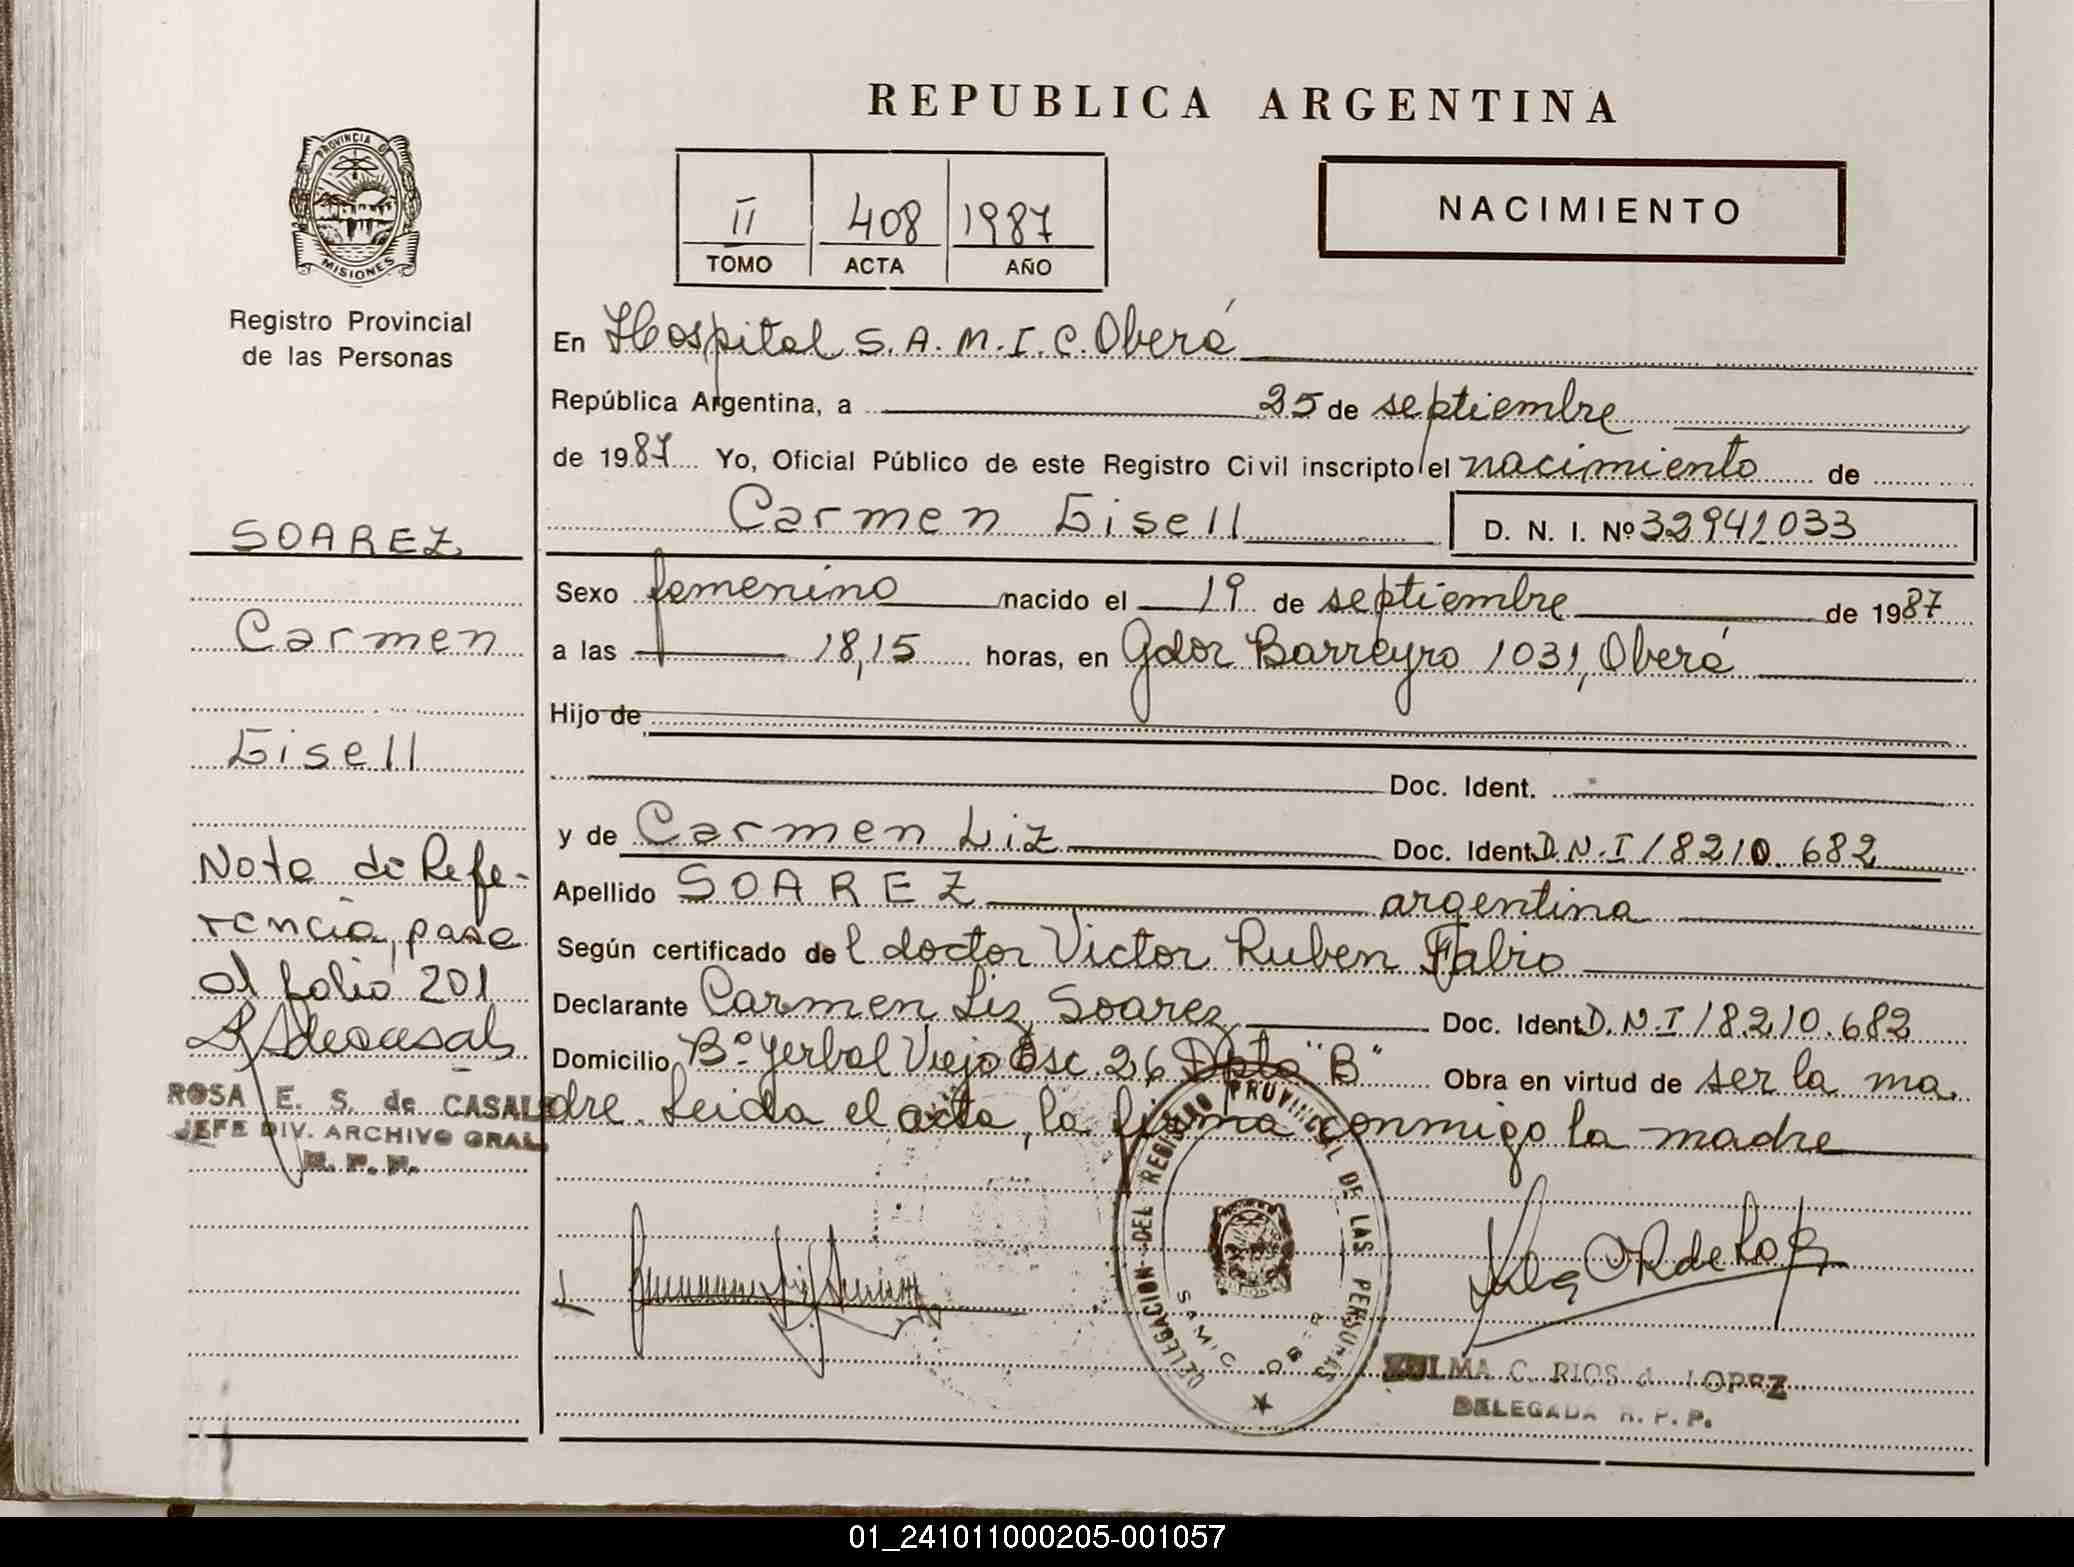 REPUBLICA ARGENTINA
PROVINCIA DE
MISIONES
Registro Provincial
de las Personas
II 408 1987
TOMO ACTA AÑO
NACIMIENTO
En Hospital S.A.M.I.C. Oberá
República Argentina, a 25 de septiembre
de 1987 Yo, Oficial Público de este Registro Civil inscripto el nacimiento de
Carmen Gisell D. N. I. Nº 32941033
Sexo femenino nacido el 19 de septiembre de 1987
a las 18,15 horas, en Gdor Barreyro 1031, Oberá
Hijo de
Doc. Ident.
y de Carmen Liz Doc. Ident. D.N.I 18210.682
Apellido SOAREZ argentina
Según certificado del doctor Victor Ruben Fabio
Declarante Carmen Liz Soarez Doc. Ident. D.N.I 18.210.682
Domicilio Bº Yerbal Viejo Esc. 26 Dpto "B" Obra en virtud de ser la ma
dre. Leida el acta, la firma conmigo la madre
SOAREZ
Carmen
Gisell
Nota de Refe-
rencia, pase
al folio 201
ROSA E. S. de CASALS
JEFE DIV. ARCHIVO GRAL.
R. P. P.
DELEGACION DEL REGISTRO PROVINCIAL DE LAS PERSONAS
SAMIC OBERA
ZULMA C. RIOS de LOPEZ
DELEGADA R. P. P.
01_241011000205-001057